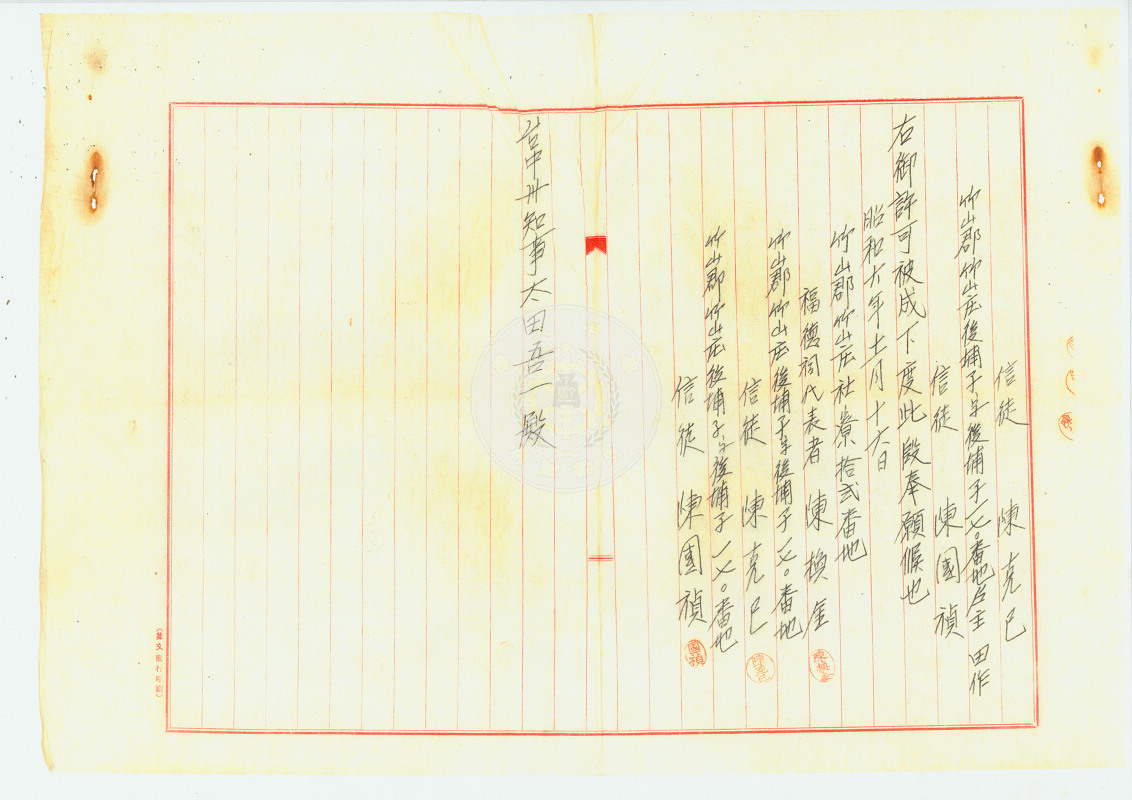 信徒 陳克己
竹山郡竹山庄後埔子字後埔子一七〇番地戶主 田作
信徒 陳國禎
右御許可被成下度此段奉願候也
昭和六年十一月十六日
竹山郡竹山庄社寮拾弐番地
福德祠代表者 陳換金
竹山郡竹山庄後埔子字後埔子一七〇番地
信徒 陳克己
竹山郡竹山庄後埔子字後埔子一七〇番地
信徒 陳國禎
國禎
台中州知事太田吾一殿